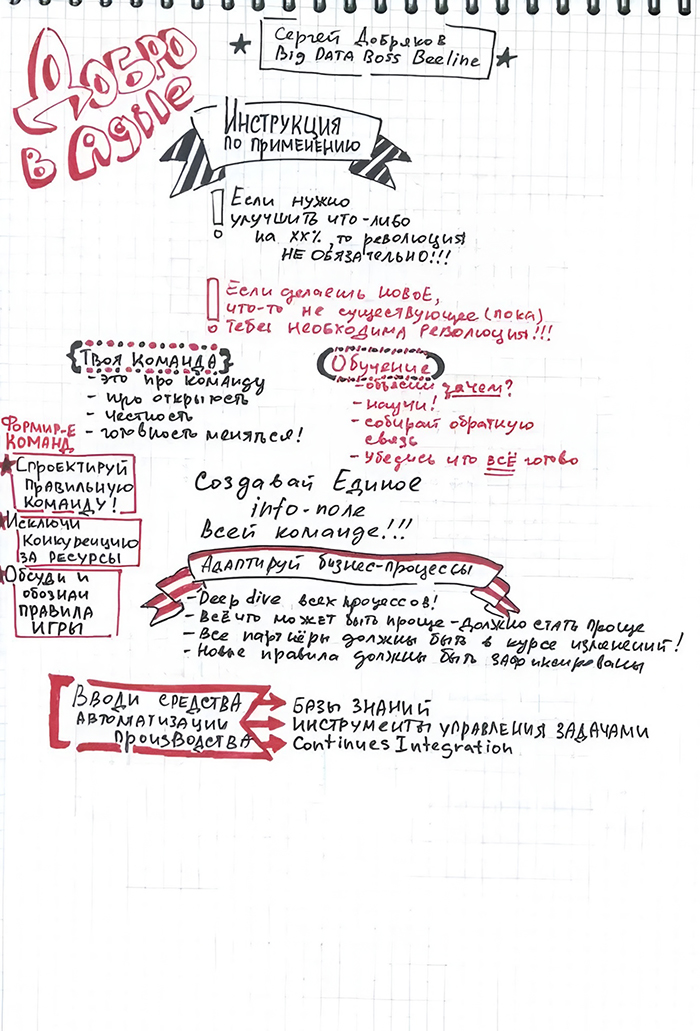 Добро
в Agile
Сергей Добряков
Big DATA Boss Beeline
Инструкция
по применению
! Если нужно
улучшить что-либо
на xx%, то революция
НЕ ОБЯЗАТЕЛЬНО!!!
! Если делаешь новое,
что-то не существующее (пока)
Тебе необходима революция!!!
Твоя команда
- это про команду
- про открытость
- честность
- готовность меняться!
Обучение
- объясни зачем?
- научи!
- собирай обратную
связь
- Убедись что всё готово
Формир-е
команд
Спроектируй
правильную
команду!
Исключи
конкуренцию
за ресурсы
Обсуди и
обозначи
правила
игры
Создавай Единое
info-поле
всей команде!!!
Адаптируй бизнес-процессы
- Deep dive всех процессов!
- Всё что может быть проще - должно стать проще
- Все партнёры должны быть в курсе изменений!
- Новые правила должны быть зафиксированы
Вводи средства
автоматизации
производства
Базы знаний
Инструменты управления задачами
Continues Integration